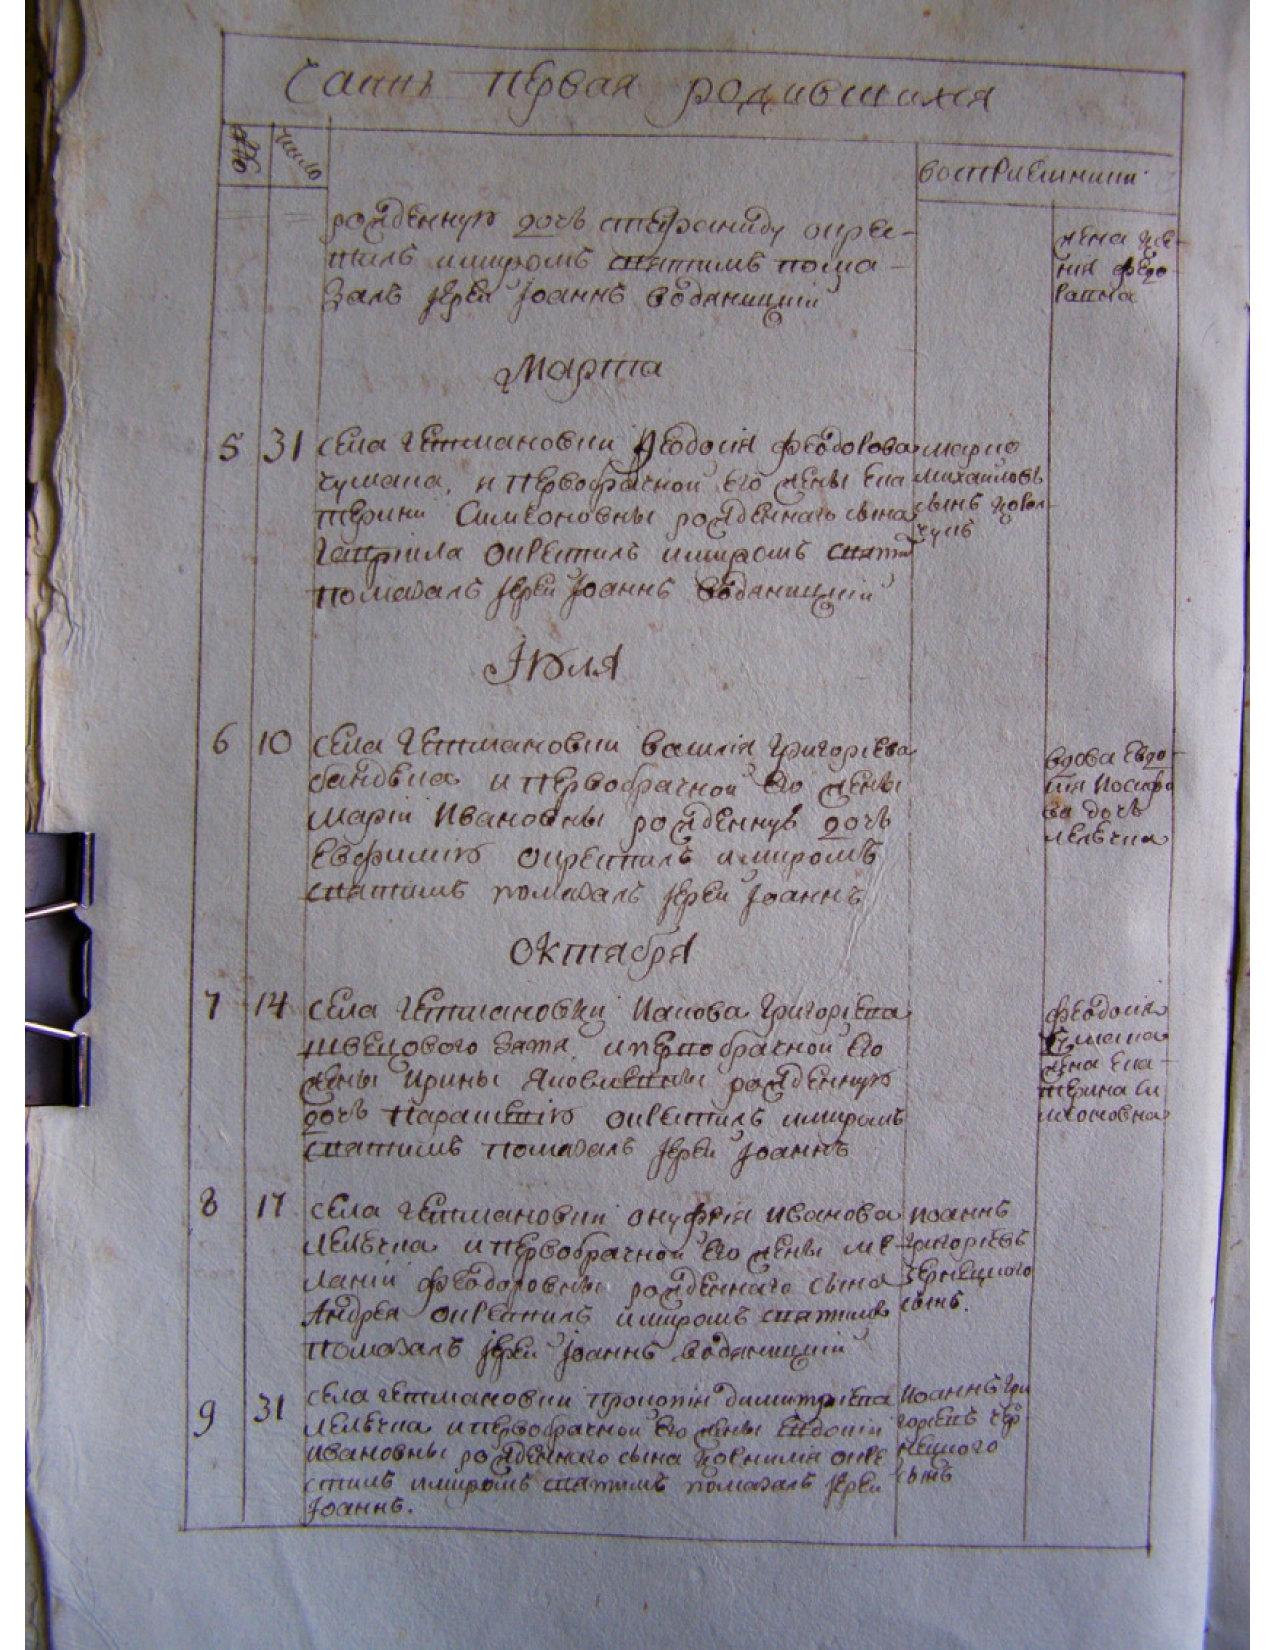 Часть первая родившихся
число
восприемники
рожденную дочь Стефаниду окре-
стилъ и миромъ святымъ пома-
залъ Іерей Іоаннъ Воданицкій
жена
ния Федо-
ровна
Марта
5 31 села Гетмановки Феодосія Феодорова
чумака, и первобрачной его жены Ека
терини Симеоновны рожденнаго сына
Гавріила окрестилъ и миромъ святы
помазалъ Іерей Іоаннъ Воданицкій
Марко
Михаиловъ
сынъ
Іюля
6 10 села Гетмановки Василія Григоріева
и первобрачной его жены
Маріи Ивановны рожденную дочь
Евфимію окрестилъ и миромъ
святымъ помазалъ Іерей Іоаннъ
вдова Евдо-
кія Йосифо
ва дочь
Лелѣчка
Октября
7 14 села Гетмановки Иакова Григоріева
швецового зятя, и первобрачной его
жены Ирины Яковлевны рожденную
дочь Параскевію окрестилъ и миромъ
святимъ помазалъ Іерей Іоаннъ
Феодосія
Чумака
жена Ека-
терина Си
меоновна
8 17 села Гетмановки Онуфрія Иванова
Лелѣчка и первобрачной его жены Ме-
ланіи Феодоровны рожденнаго сына
Андрея окрестилъ и миромъ святимъ
помазалъ Іерей Іоаннъ Воданицкій
Иоаннъ
Григоріевъ
сынъ.
9 31 села Гетмановки Прокопія Димитріева
Лелѣчка и первобрачной его жены Евдокіи
Ивановны рожденнаго сына окре
стилъ и миромъ святимъ помазалъ Іерей
Іоаннъ.
Иоаннъ Гри
горіевъ Чер
нецкого
сынъ